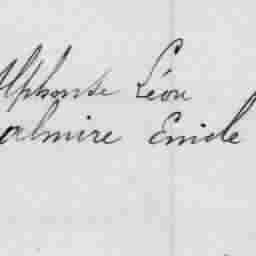 Alphonse Léon
almire Emile